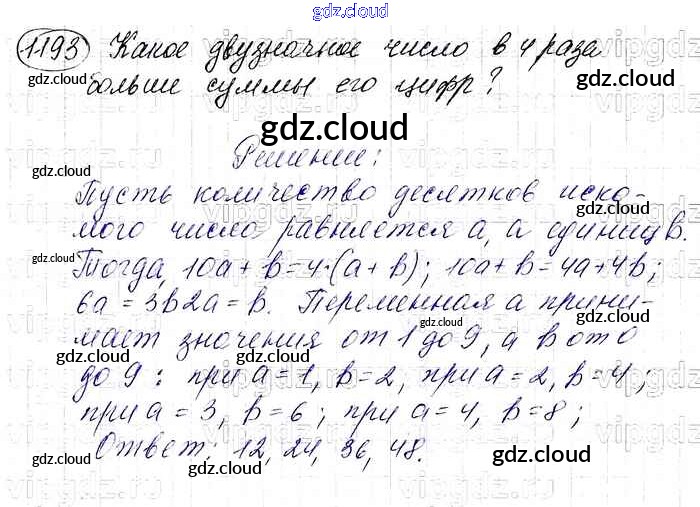 gdz.cloud
1193 Какое двузначное число в 4 раза
gdz.cloud gdz.cloud
больше суммы его цифр?
gdz.cloud
gdz.cloud Решение: gdz.cloud
Пусть количество десятков иско-
gdz.cloud
мого число равняется a, а единиц b.
gdz.cloud
Тогда, 10a + b = 4·(a + b); 10a + b = 4a + 4b;
6a = 3b 2a = b. Переменная a прини-
gdz.cloud
мает значения от 1 до 9, а b от 0
gdz.cloud gdz.cloud
до 9 : при a = 1, b = 2, при a = 2, b = 4;
при a = 3, b = 6; при a = 4, b = 8;
Ответ: 12, 24, 36, 48.
gdz.cloud gdz.cloud gdz.cloud